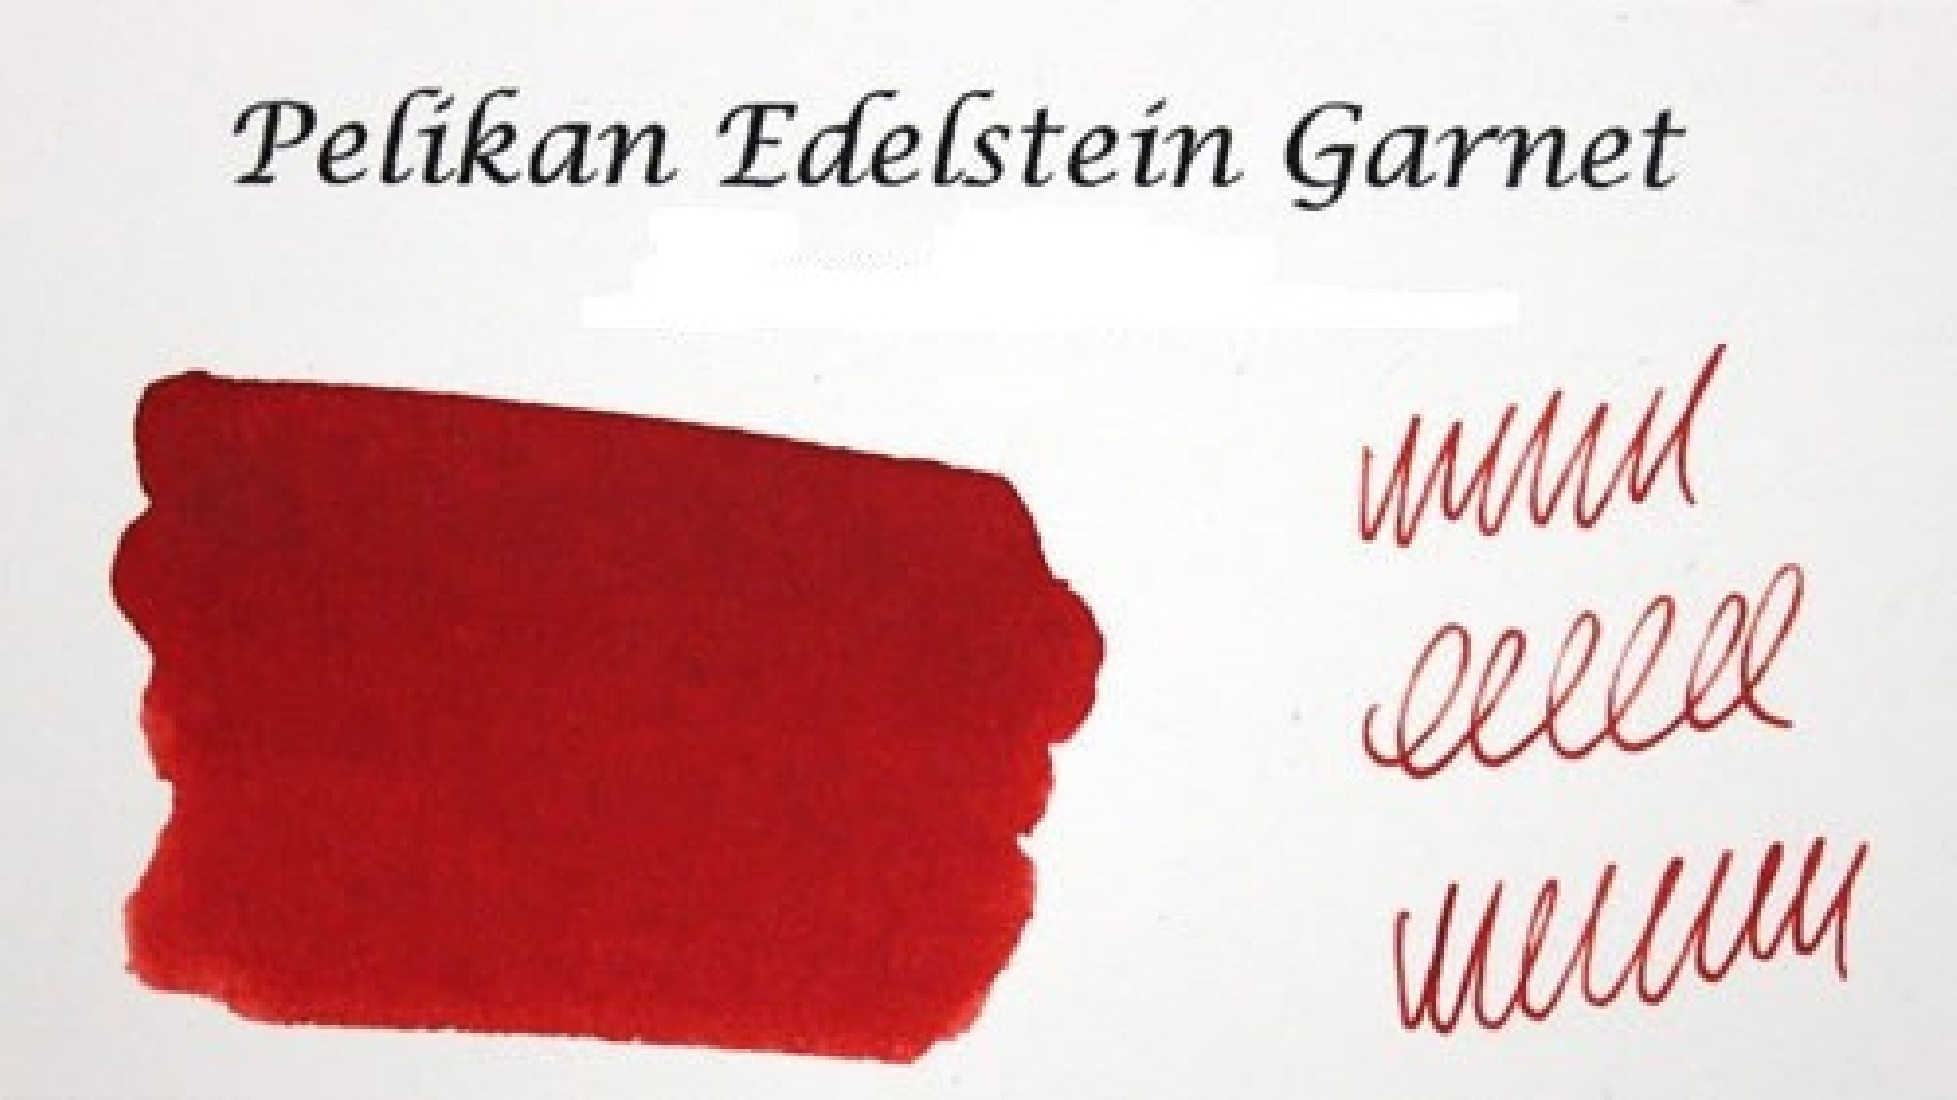 Pelikan Edelstein Garnet